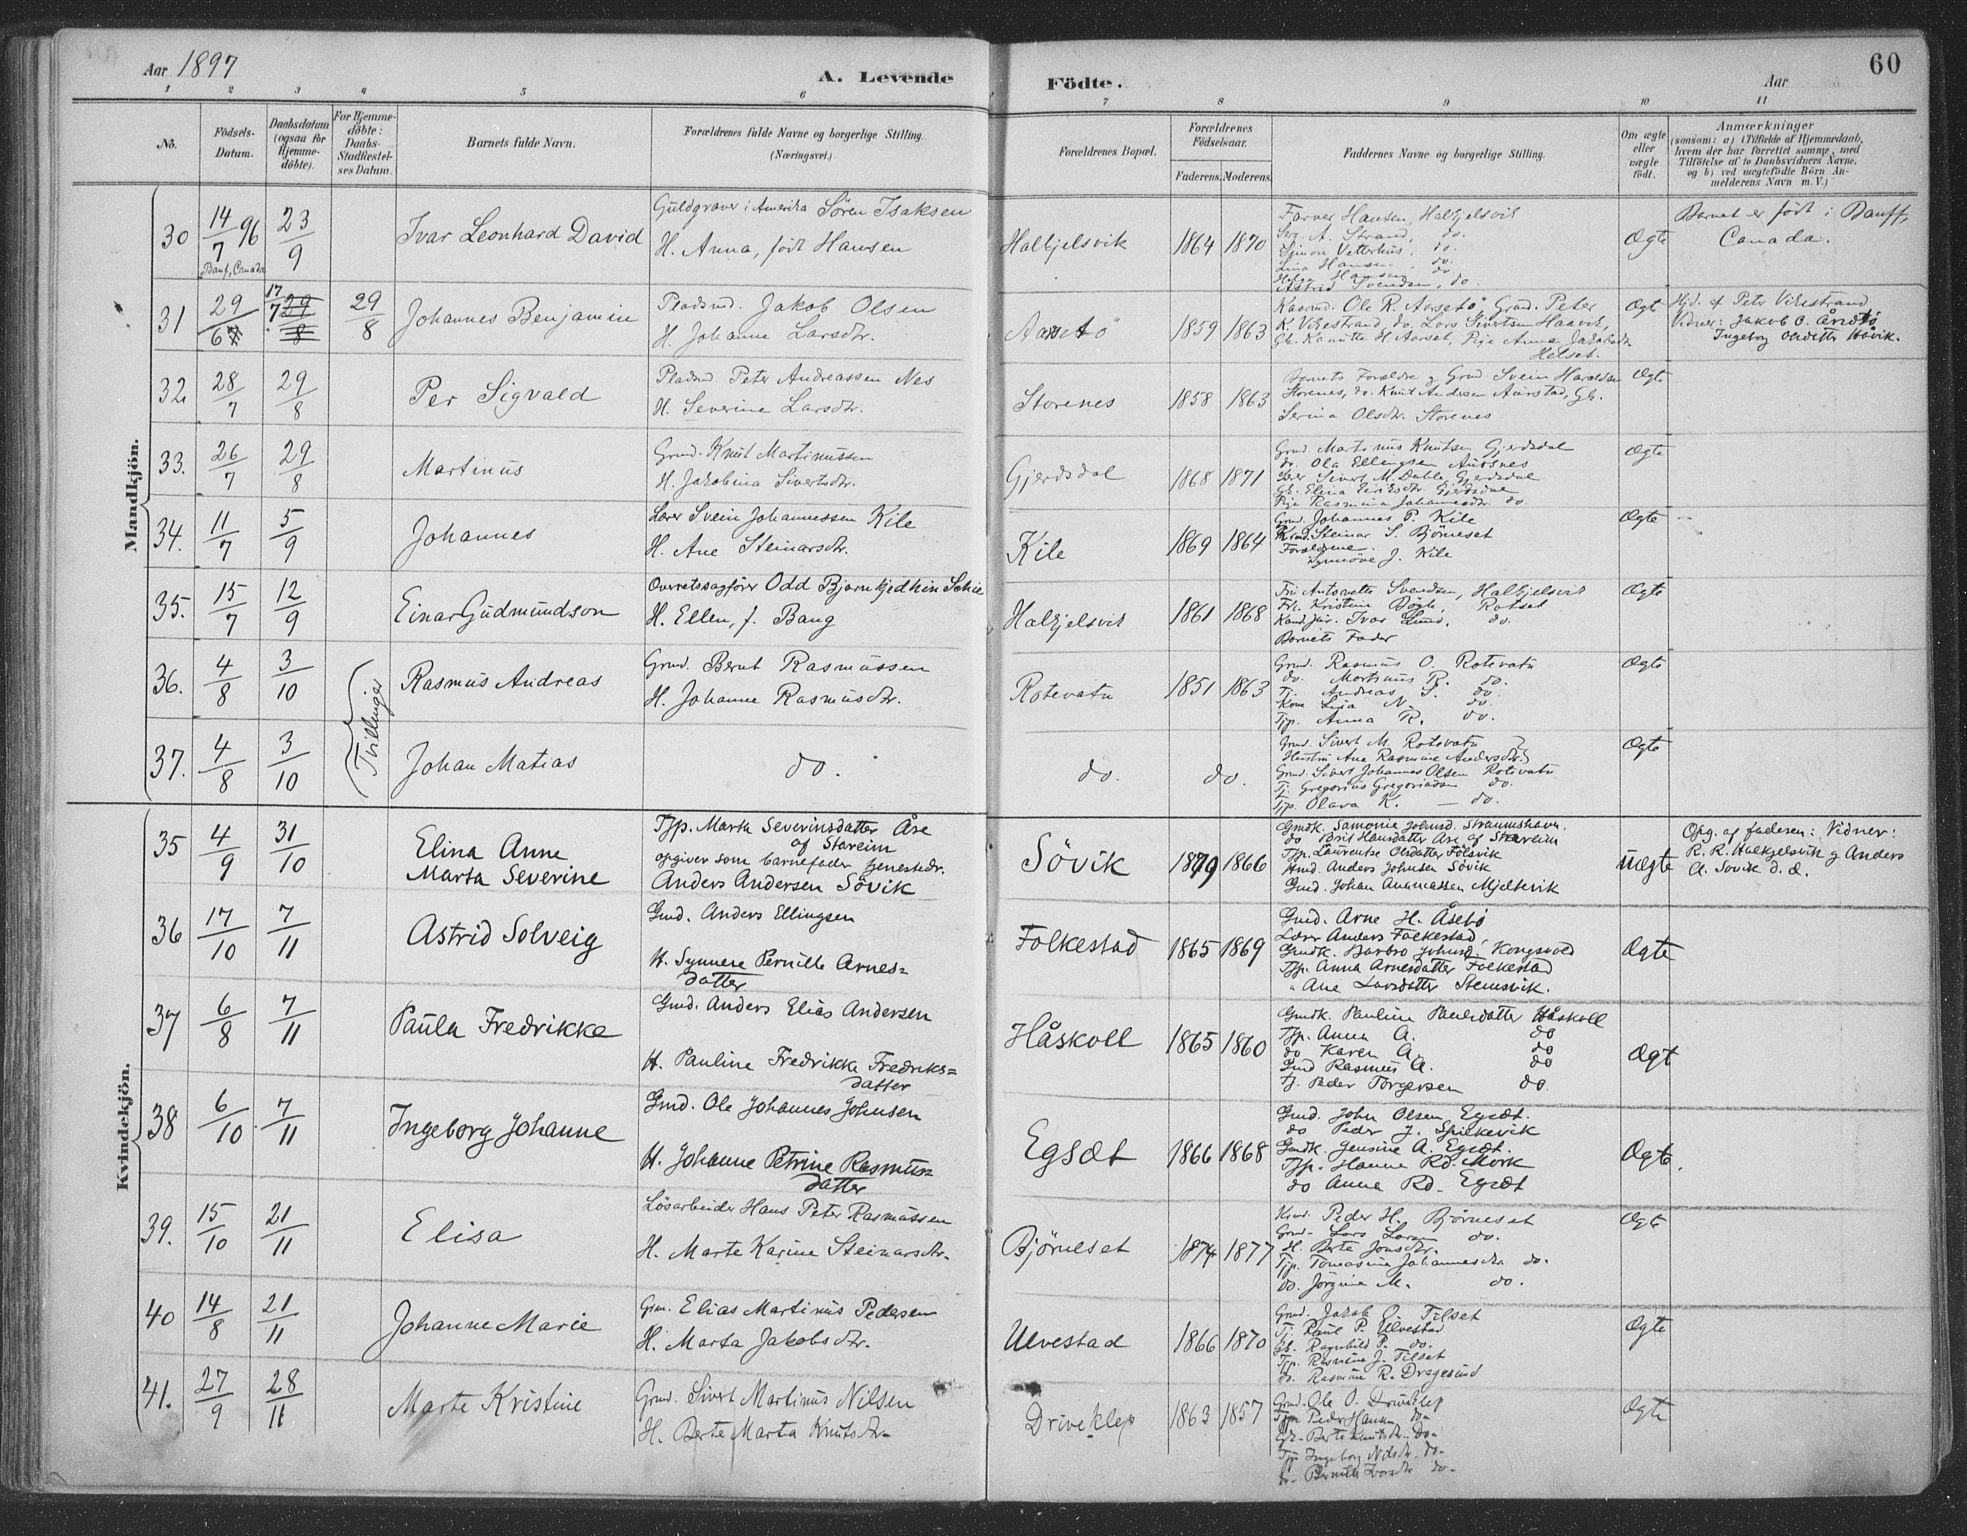 Aar 1897
A. Levende Födte.
Aar
60
1 2 3 4 5 6 7 8 9 10 11
No.
Födsels-Datum.
Daabsdatum (ogsaa for Hjemme-döbte).
For Hjemme-döbte: Daabs-Stadfæstel-ses Datum.
Barnets fulde Navn.
Forældrenes fulde Navne og borgerlige Stilling.
(Næringsvei.)
Forældrenes Bopæl.
Forældrenes Födselsaar.
Faderens. Moderens.
Faddernes Navne og borgerlige Stilling.
Om ægte eller uægte födt.
Anmærkninger
(saasom: a) i Tilfælde af Hjemmedaab,
hvem der har forrettet samme, med
Tilföielse af to Daabsvidners Navne,
og b) ved uægtefödte Börn An-
melderens Navn m. V.)
Mandkjön.
30 14/7 96 23/9 Ivar Leonhard David
Banf, Canada
Guldgraver i Amerika Sören Isaksen
H. Anna, født Hansen
Halkjelsvik 1864 1870
Farver Hansen, Halkjelsvik
Ser. A. Strand, do.
Simon Vetterhus, do.
Lina Hansen, do.
Hansen do.
Astrid Svendsen, do.
Ægte
Barnet er født i Banff,
Canada.
31 29/6 17/7 29/8 29/8 Johannes Benjamin
Pladsmd. Jakob Olsen
H. Johanne Larsdtr.
Aarsetö 1859 1863
Kaarmd. Ole R. Aarsetö, Grmd. Peter
K. Vikestrand, do. Lars Sivertsen Haavik,
Gk. Hanutte H. Aarset, Pige Anna Jakobsdtr.
Helset.
Ægt
Hjd. af Peter Vikestrand
Vidner: Jakob O. Årsetö
Ingeborg Olsdtter Håvik.
32 28/7 29/8 Per Sigvald
Pladsmd. Peter Andreassen Nes
H. Severine Larsdtr.
Storenes 1858 1863
Barnets Forældre og Grmd. Svein Haraldsen
Storenes, do. Knut Andersen Aurstad, Gk.
Serina Olsdtr. Storenes
Ægte
33. 26/7 29/8 Martinus
Grmd. Knut Martinussen
H. Jakobina Sivertsdtr.
Gjerdsdal 1868 1871
Grmd. Martinus Knutsen Gjerdsdal
do. Ola Ellingsen Aursnes
Lærer Sivert M. Dahle, Gjerdsdal
Gk. Elina Eiriksdtr. Gjerdsdal
Pige Rasmina Johannesdtr. do.
Ægte
34. 11/7 5/9 Johannes
Lærer Svein Johannessen Kile
H. Ane Steinarsdtr.
Kile 1869 1864
Grmd. Johannes P. Kile
Kmd. Steinar S. Bjørneset
Forældrene.
Synnöve J. Kile
Ægte
35. 15/7 12/9 Einar Gudmundson
Overretssagfører Odd Bjarnhjedhin Schie
H. Ellen, f. Bang
Halkjelsvik 1861 1868
Fru Antonette Svendsen, Halkjelsvik
Frk. Kristine Bögh, Rotset
Kand. jur. Ivar Lund, do.
Barnets Fader
Ægte
36. 4/8 3/10 Rasmus Andreas
Tvillinger
Grmd. Bernt Rasmussen
H. Johanne Rasmusdtr.
Rotevatn 1851 1863
Grmd. Rasmus O. Rotevatn
do. Martinus R. do.
Tj. Andreas S. do.
Kone Lisa N. do.
Tjp. Anna R. do.
Ægte
37. 4/8 3/10 Johan Matias
do. do. do.
Grmd. Sivert M. Rotevatn
Hustru Ane Rasmine Andersdtr.
Grmd. Sivert Johannes Olsen Rotevatn
Tj. Gregorius Gregoriussen do.
Tjp. Olava K. — do.
Ægte
Kvindekjön.
35 4/9 31/10 Elina Anne
Marta Severine
Tjp. Marta Severinsdatter Åre
af Stareim
opgiver som barnefader tjenestedr.
Anders Andersen Sövik
Sövik 1879 1866
Gmdk. Samonie Johnsd. Straumshavn.
do Brit Hansdatter Åre af Stareim
Tjp. Laurentse Olsdatter Fölsvik
Gmd. Anders Johnsen Sövik
Gmd. Johan Anamassen Mjeltevik
uægte
Opg. af faderen: Vidner:
R. R. Halkjelsvik og Anders
A. Sövik d. æ.
36 17/10 7/11 Astrid Solveig
Gmd. Anders Ellingsen
H. Synnere Pernille Arnes=
datter
Folkestad 1865 1869
Gmd. Arne H. Åsebö
Lærer Anders Folkestad,
Gmdk. Barbro Johnsd. Kongsvold
Tjp. Anna Arnesdatter Folkestad
" Ane Larsdatter Stensvik.
Ægte
37 6/8 7/11 Paula Fredrikke
Gmd. Anders Elias Andersen
H. Pauline Fredrikke Fredriks=
datter
Håskoll 1865 1860
Gmdk. Pauline Paulsdatter Håskoll
Tjp. Anna A. do
do Karen A. do
Gmd Rasmus A. do
tj. Peder Torgersen do.
Ægt
38 6/10 7/11 Ingeborg Johanne
Gmd. Ole Johannes Johnsen
H. Johanne Petrine Rasmus=
datter
Egsæt 1866 1868
Gmd. John Olsen Egsæt.
do Peder J. Spilkevik
Gmdk. Jensine A. Egsæt.
Tjp. Hanna Rd. Mork
do Anna Rd. Egsæt
Ægte.
39. 15/10 21/11 Elisa
Lösarbeider Hans Peter Rasmussen
H. Marte Karine Steinarsdtr.
Bjørneset 1874 1877
Kmd. Peder H. Bjørneset
Grmd. Lars Larsen do.
H. Berte Jonsdtr.
Tjp. Tomasine Johannesdtr. do.
do. Jörgine M. do.
Ægte
40 14/8 21/11 Johanne Marie
Grm. Elias Martinus Pedersen
H. Marta Jakobsdtr.
Ulvestad 1866 1870
Grmd. Jakob O. Tilset
Tj. Paul P. Ulvestad
Gk. Ragnhild P. do.
Tjp. Rasmine J. Tilset
do. Rasmine R. Dragesund
Ægte
41. 27/9 28/11 Marte Kristine
Grmd. Sivert Martinus Nilsen
H. Berte Marta Knutsdtr.
Driveklep 1863 1857
Grmd. Ole O. Driveklep
Peder Hansen do-
Berte Knutsdtr. do-
Tjp Ingeborg Nilsdtr. do-
do- Pernille Iversdtr do-
Ægte